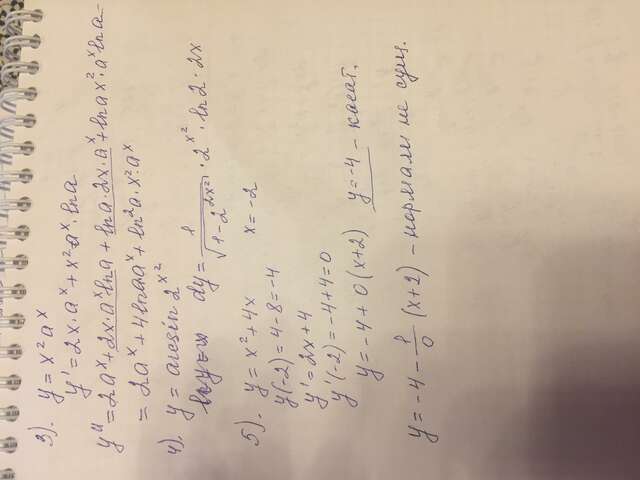 3). y = x²aˣ
y' = 2x·aˣ + x²·aˣ·lna
y'' = 2aˣ + 2x·aˣlna + lna·2x·aˣ + lnax²·aˣlna
= 2aˣ + 4lnaaˣ + ln²a·x²aˣ
4). y = arcsin2^x²
dy = 1/√(1-2^2x²) · 2^x² · ln2 · 2x
5). y = x² + 4x x = -2
y(-2) = 4-8 = -4
y' = 2x + 4
y'(-2) = -4+4 = 0
y = -4 + 0(x+2) y = -4 - касат.
y = -4 - 1/0 (x+2) - нормали не сущ.